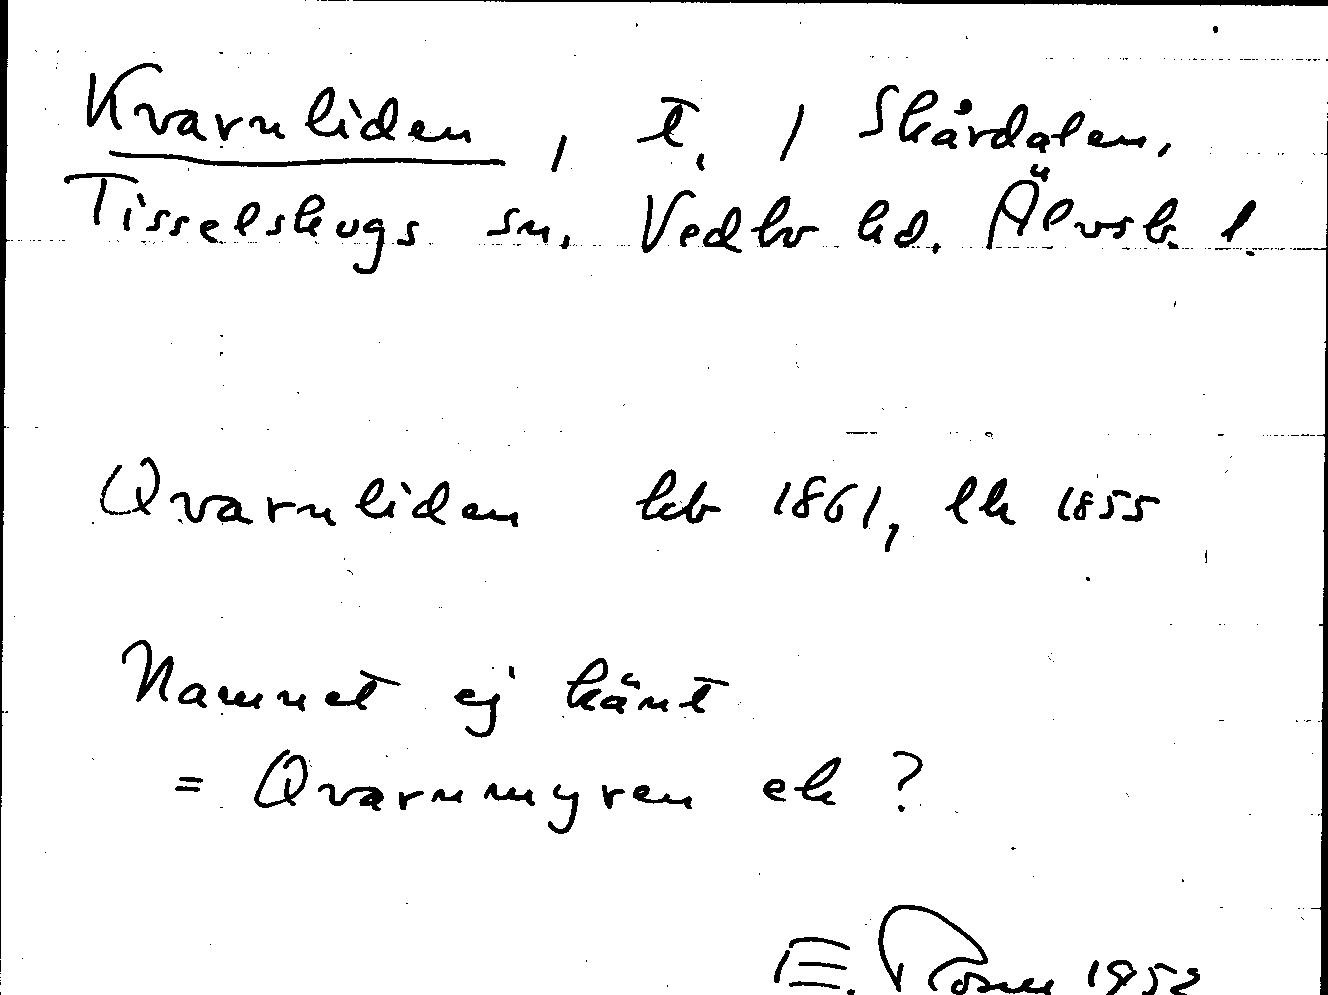 Kvarnliden, t. / Skårdalen,
Tisselskogs sn. Vedbo hd. Älvsb. l.
Qvarnliden kb 1861, lk 1855
Namnet ej känt
= Qvarnmyren ek ?
E. Rosn 1952